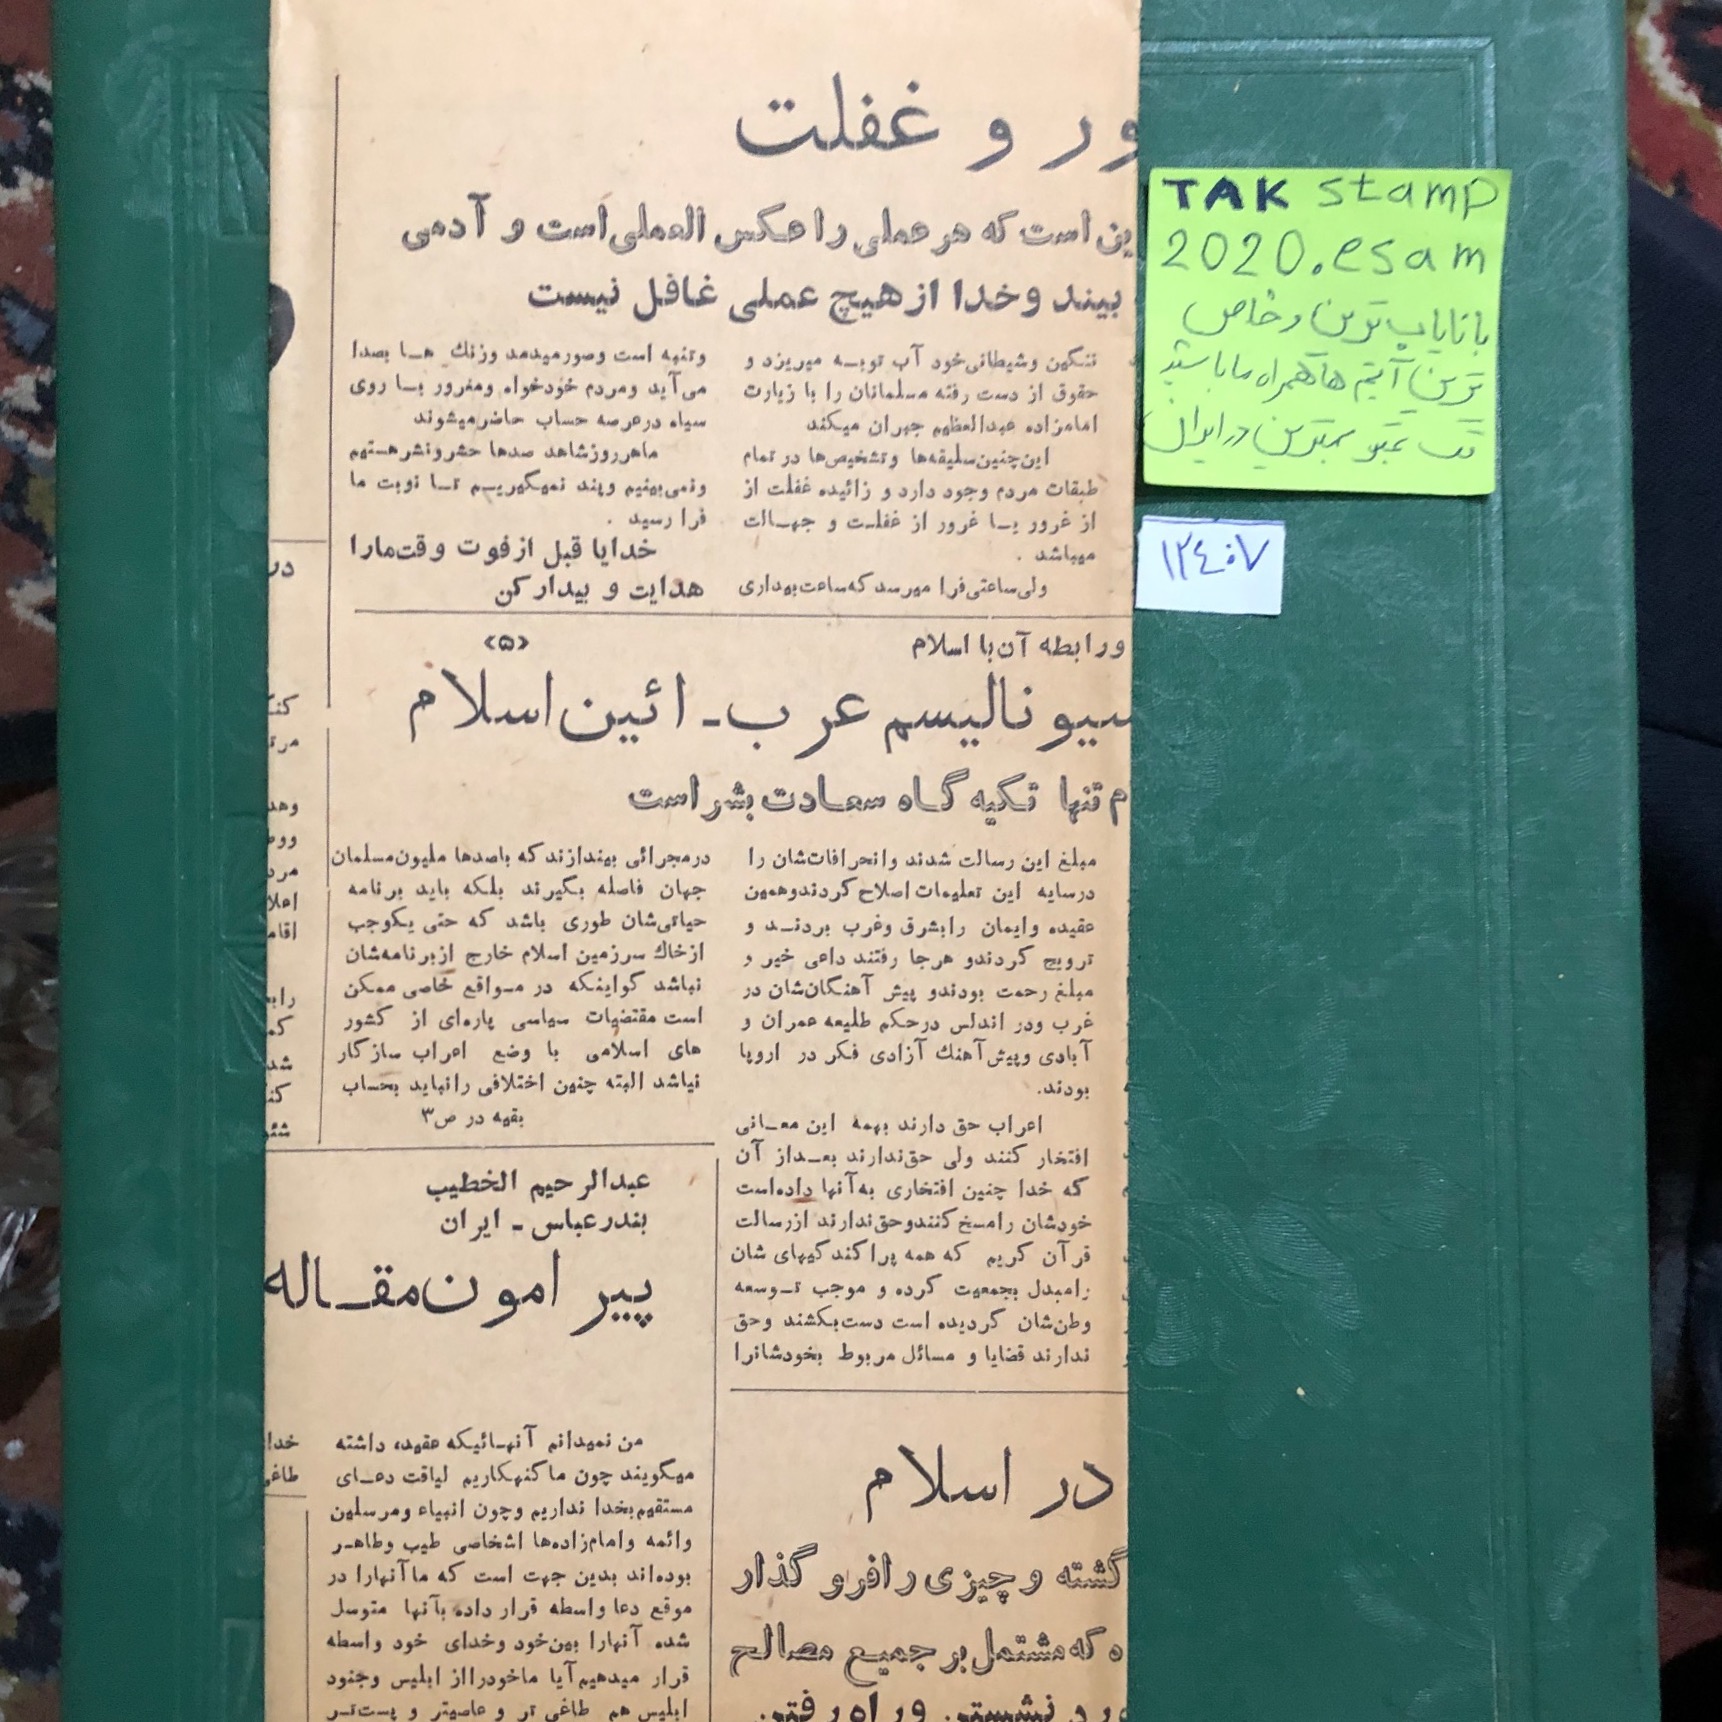 ور و غفلت
ین است که هر عملی را عکس العملی است و آدمی
بیند و خدا از هیچ عملی غافل نیست
ننگین وشیطانی خود آب توبه میریزد و
حقوق از دست رفته مسلمانان را با زیارت
امامزاده عبدالعظیم جبران میکند
این چنین سلیقه‌ها وتشخیص‌ها در تمام
طبقات مردم وجود دارد و زائیده غفلت از
از غرور یا غرور از غفلت و جهالت
میباشد .
ولی ساعتی فرا میرسد که ساعت بیداری
وتنبه است وصور میدمد وزنگ ها بصدا
می‌آید ومردم خودخواه ومغرور با روی
سیاه در عرصه حساب حاضر میشوند
ماهرروز شاهد صدها حشر و نشر هستیم
ونمی‌بینیم وپند نمیگیریم تا نوبت ما
فرا رسید .
خدایا قبل از فوت وقت مارا
هدایت و بیدار کن
ورابطه آن با اسلام
<۵>
سیونالیسم عرب ـ ائین اسلام
م تنها تکیه گاه سعادت بشر است
مبلغ این رسالت شدند وانحرافات‌شان را
درسایه این تعلیمات اصلاح کردندوهمین
عقیده وایمان رابشرق وغرب بردند و
ترویج کردندو هرجا رفتند داعی خیر و
مبلغ رحمت بودندو پیش آهنگان‌شان در
غرب ودر اندلس درحکم طلیعه عمران و
آبادی وپیش‌آهنگ آزادی فکر در اروپا
بودند.
اعراب حق دارند بهمه این معانی
افتخار کنند ولی حق‌ندارند بعداز آن
که خدا چنین افتخاری به‌آنها داده‌است
خودشان رامسخ کنندوحق‌ندارند ازرسالت
قرآن کریم که همه پراکندگیهای شان
رامبدل بجمعیت کرده و موجب توسعه
وطن‌شان گردیده است دست‌بکشند وحق
ندارند قضایا و مسائل مربوط بخودشانرا
درمجرائی بیندازند که باصدها ملیون‌مسلمان
جهان فاصله بگیرند بلکه باید برنامه
حیاتی‌شان طوری باشد که حتی یکوجب
ازخاك سرزمین اسلام خارج ازبرنامه‌شان
نباشد گواینکه در مواقع خاصی ممکن
است مقتضیات سیاسی پاره‌ای از کشور
های اسلامی با وضع اعراب سازکار
نیاشد البته چنین اختلافی رانباید بحساب
بقیه در ص۳
عبدالرحیم الخطیب
بندرعباس ـ ایران
پیرامون مقاله
من نمیدانم آنهائیکه عقیده داشته
میگویند چون ما گنهکاریم لیاقت دعای
مستقیم‌بخدا نداریم وچون انبیاء ومرسلین
وائمه وامام‌زاده‌ها اشخاصی طیب وطاهر
بوده‌اند بدین جهت است که ماآنهارا در
موقع دعا واسطه قرار داده بآنها متوسل
شده آنهارا بین‌خود وخدای خود واسطه
قرار میدهیم آیا ماخودرااز ابلیس وجنود
ابلیس هم طاغی تر و عاصیتر و پست‌تر
در اسلام
گشته و چیزی را فروگذار
ه که مشتمل بر جمیع مصالح
ورد نشستن و راه رفتن
در
مرت
وهد
مرد
اعلا
اقام
راب
شد
خدا
طاغی
TAK stamp
2020.esam
با نایاب ترین و خاص
ترین آیتم ها همراه ما باشید
تک تمبر بهترین در ایران
۱۲٤۰۷